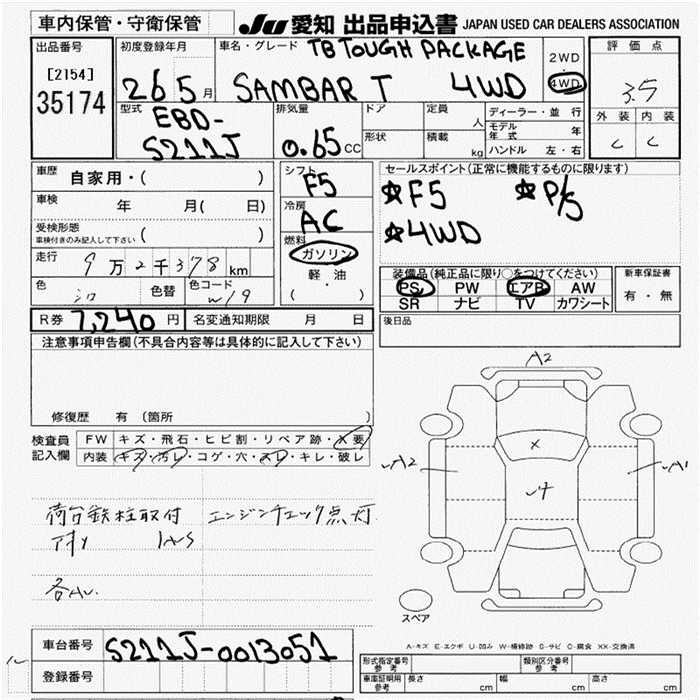 車内保管・守衛保管
JU 愛知 出品申込書 JAPAN USED CAR DEALERS ASSOCIATION
出品番号
[2154]
35174
初度登録年月
26 5月
車名・グレード
TB TOUGH PACKAGE
SAMBAR T 4WD
2WD
4WD
評価点
3.5
外装 内装
C C
型式
EBD-
S211J
排気量
0.65 CC
ドア
定員
人
形状
積載
kg
ディーラー・並行
モデル年式 年
ハンドル 左・右
車歴 自家用・( )
車検 年 月( 日)
受検形態
車検付きのみ記入して下さい ( )
走行 9万2千378km
色 シロ 色替 色コード W/9
シフト
F5
冷房
AC
燃料
ガソリン
軽・油
( ・ )
セールスポイント(正常に機能するものに限ります)
★F5 ★P/S
★4WD
装備品(純正品に限り○をつけてください)
PS PW エアB AW
SR ナビ TV カワシート
新車保証書
有・無
R券 7,240円 名変通知期限 月 日
後日品
注意事項申告欄(不具合内容等は具体的に記入して下さい)
修復歴 有 (箇所
検査員
記入欄
FW キズ・飛石・ヒビ割・リペア跡・X要
内装 キズ・汚レ・コゲ・穴・スレ・キレ・破レ
荷台鉄柱取付 エンジンチェック点灯
各AU.
A2
A2
X
A1
スペア
A-キズ E-エクボ U-凹み W-補修跡 S-サビ C-腐食 XX-交換済
車台番号 S211J-0013051
登録番号
形式指定番号
参考
類別区分番号
参考
車庫証明用
参考
長さ cm 幅 cm 高さ cm